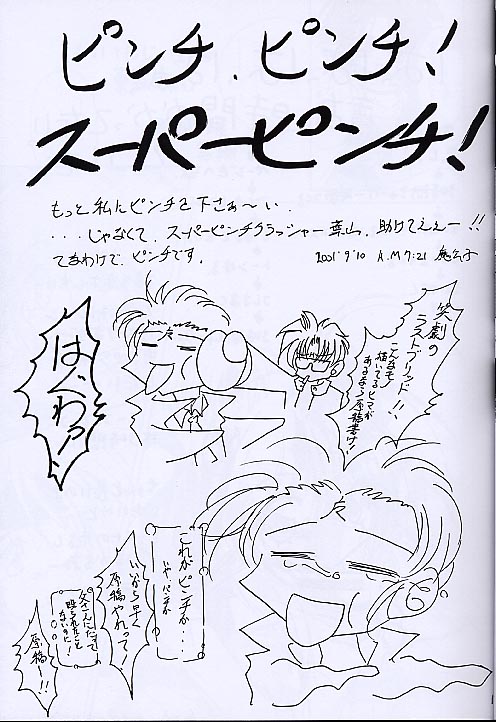 ピンチ、ピンチ!
スーパーピンチ!
もっと私にピンチを下さぁ〜い、
・・・じゃなくて、スーパーピンチクラッシャー葉山、助けてえぇー!!
てなわけで、ピンチです。 2001' 9 '10 A.M 7:21
笑劇の
ラストブリッド!!
こんなもの
描いてるヒマが
あるなら原稿書け!!
はぐわァ!
これがピンチか・・・
いや、パンチか
いいから早く
原稿やれって!
父さんにだって
殴られたこと
ないのに!
原稿ー!!